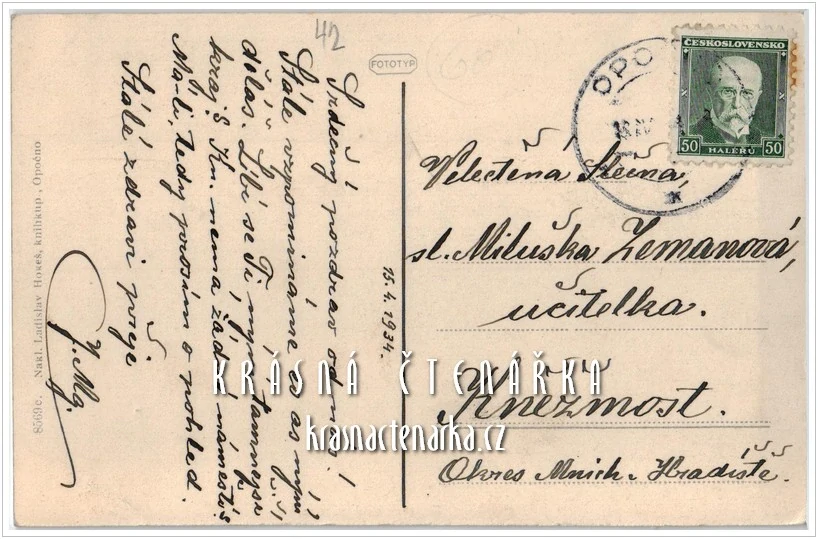 42
FOTOTYP
ČESKOSLOVENSKO
50 HALÉŘŮ 50
OPO
Velectěná Slečna,
sl. Miluška Zemanová,
učitelka.
Kněžmost.
Okres Mnich. Hradiště.
15.4.1934.
Srdečný pozdrav od nás!
Stále vzpomínáme co as nyní
děláš. Líbí se Ti nyní tamnější
kraj? Kn. nemá žád. náměstí?
Má-li, tedy prosím o pohled.
Stálé zdraví přeje
J. Mg.
8569c. Nakl. Ladislav Hokeš, knihkup., Opočno
KRÁSNÁ ČTENÁŘKA
krasnactenarka.cz